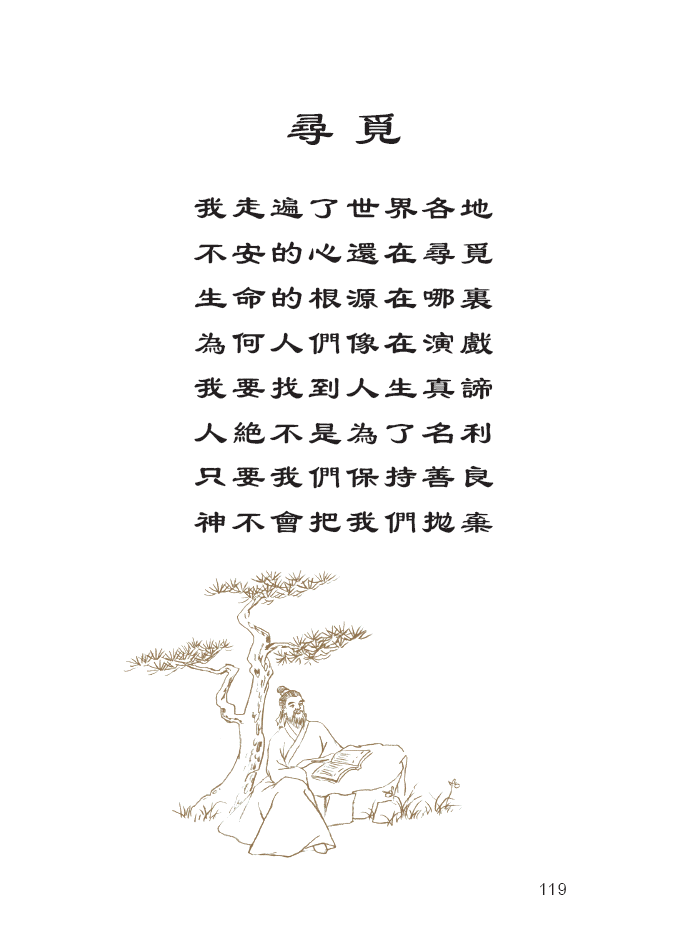 尋覓
我走遍了世界各地
不安的心還在尋覓
生命的根源在哪裏
為何人們像在演戲
我要找到人生真諦
人絕不是為了名利
只要我們保持善良
神不會把我們拋棄
119